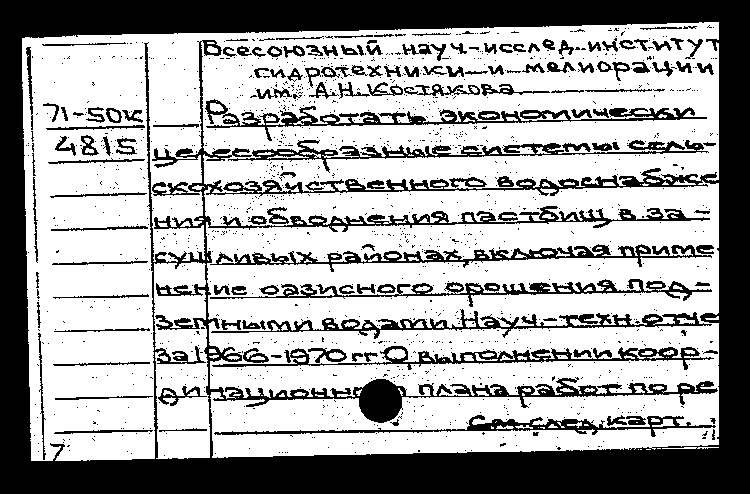 Всесоюзный науч-исслед. институт
гидротехники и мелиорации
им. А.Н. Костякова
71-50к Разработать экономически
4815 целесообразные системы сель-
скохозяйственного водоснабже
ния и обводнения пастбищ в за-
сушливых районах, включая приме
нение оазисного орошения под-
земными водами. Науч.-техн. отче
за 1966-1970 гг О выполнении коор-
динационного плана работ по ре
См. след. карт.
7